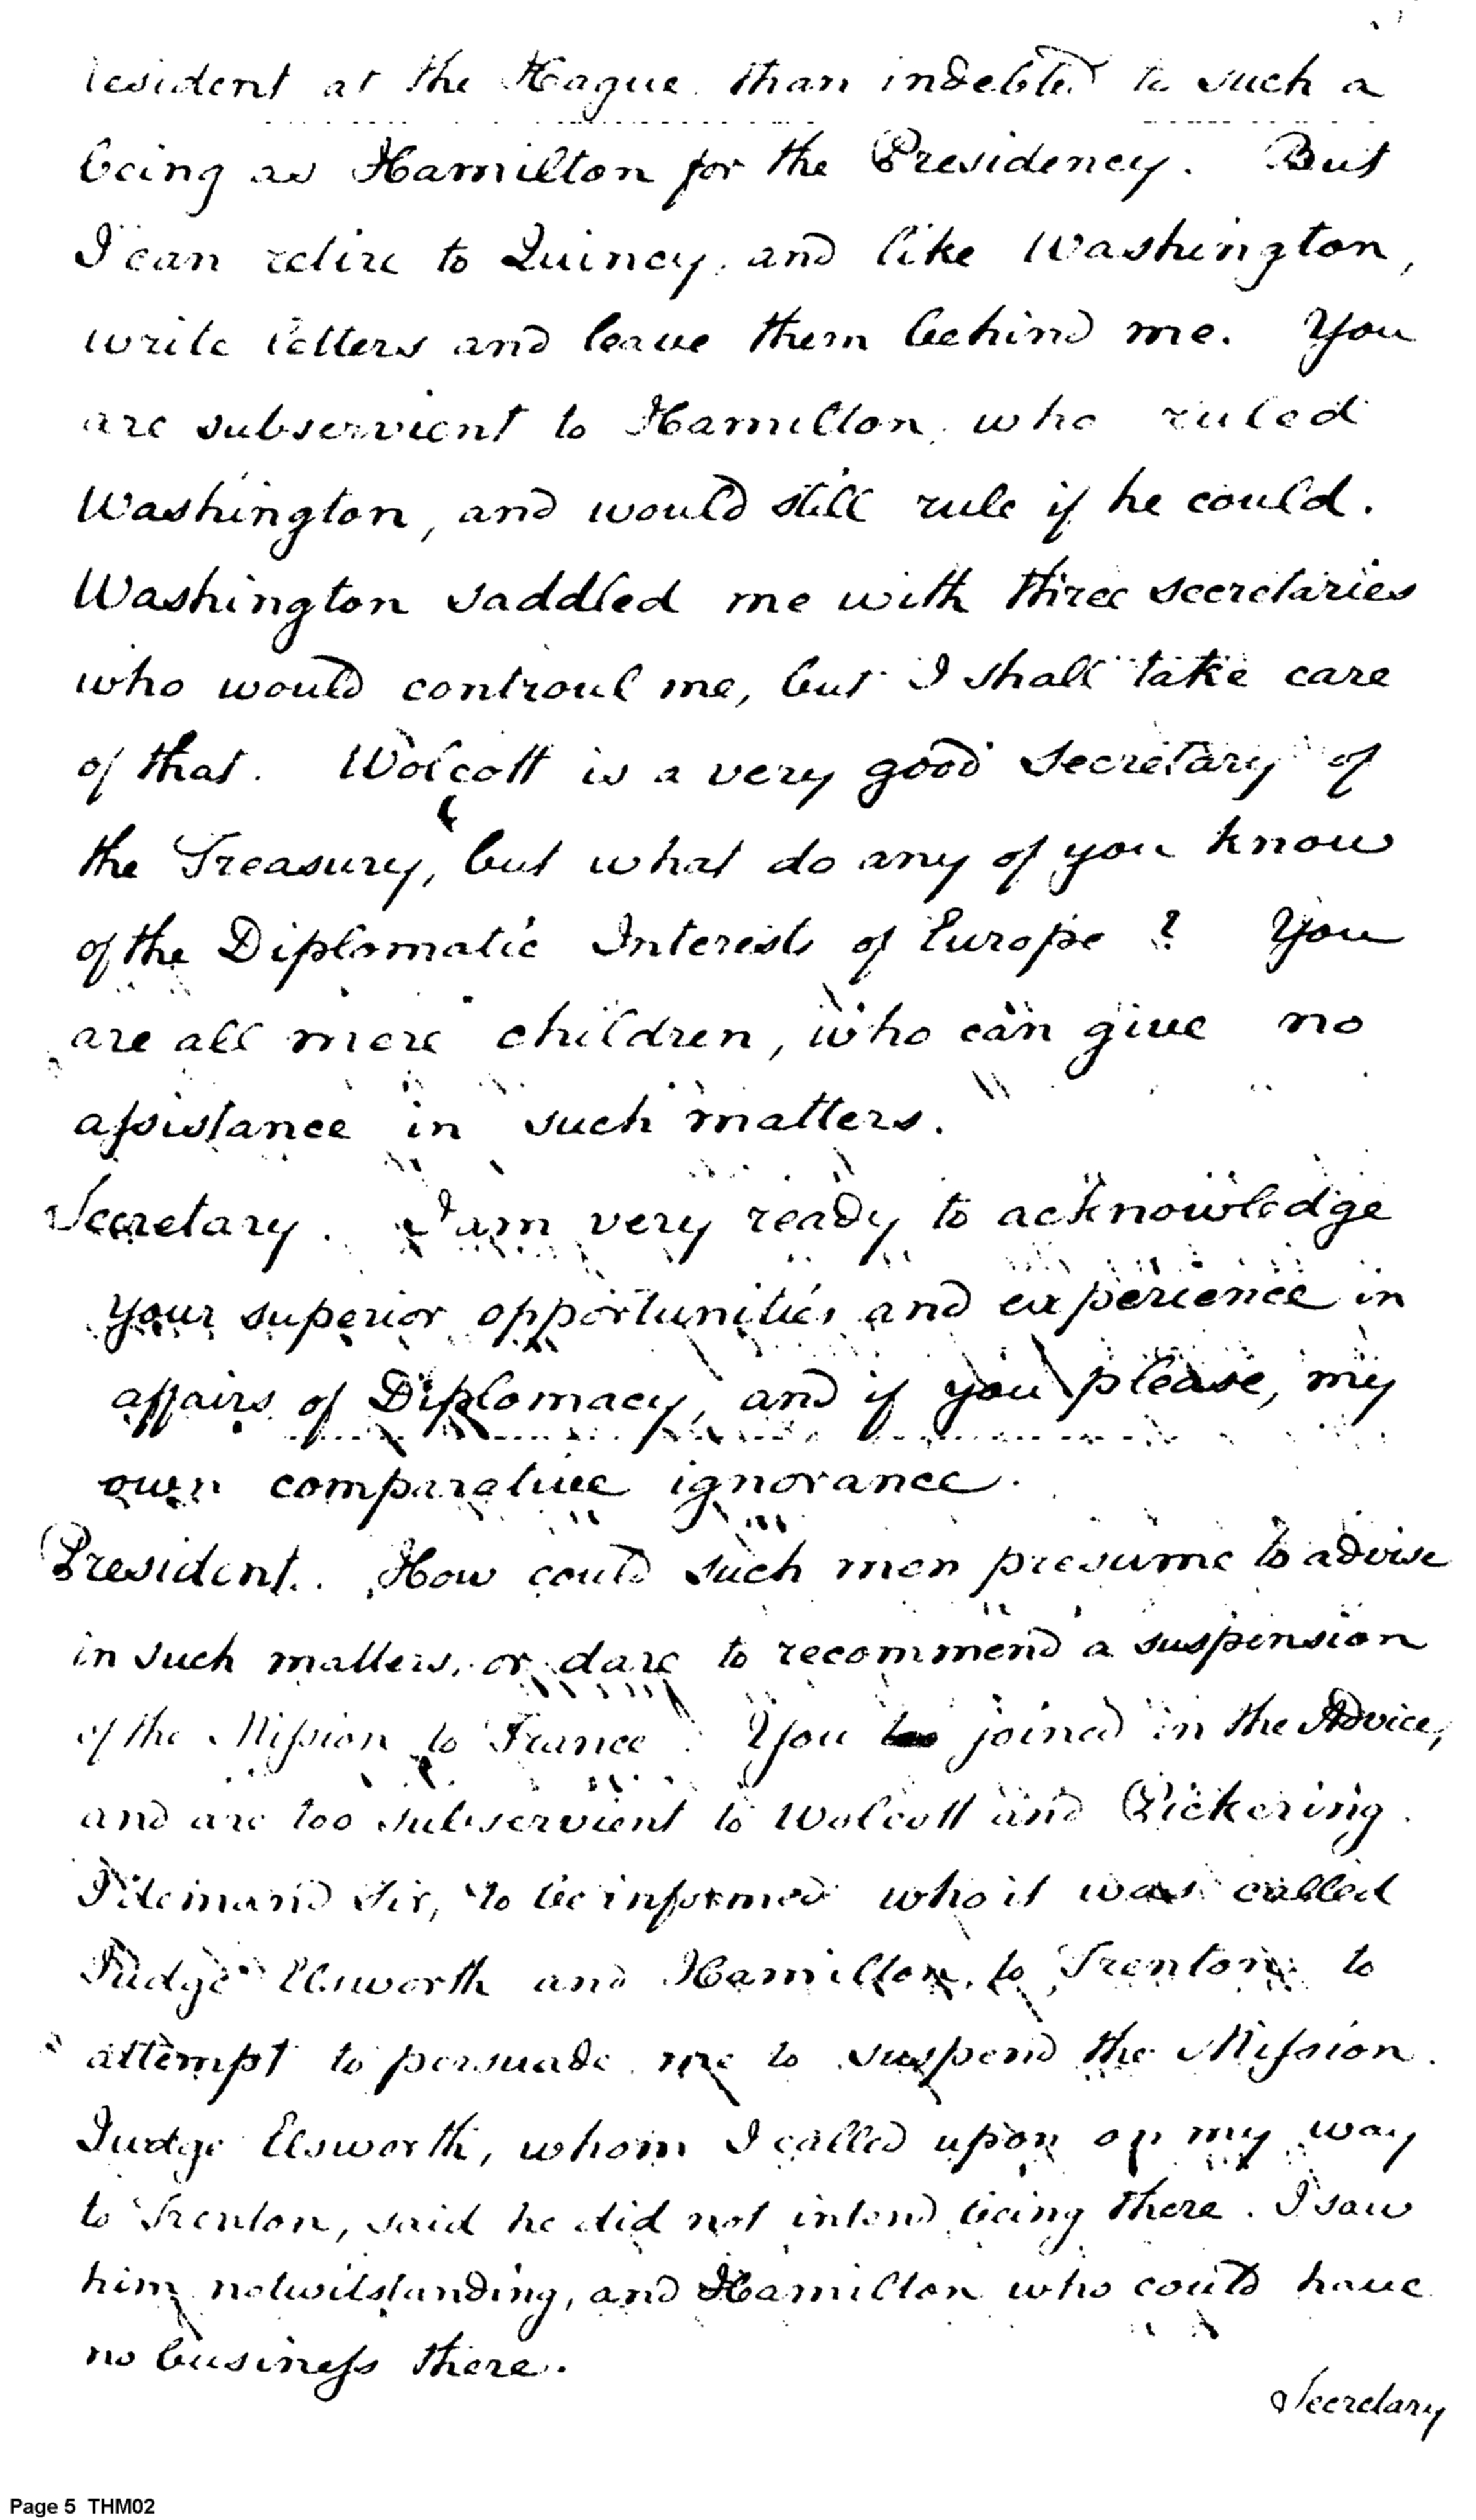 resident at the Hague than indebted to such a
being as Hamilton for the Presidency. But
I can retire to Quincy, and like Washington,
write letters and leave them behind me. You
are subservient to Hamilton, who ruled
Washington, and would still rule if he could.
Washington saddled me with three secretaries
who would controul me, but I shall take care
of that. Wolcott is a very good secretary of
the Treasury, but what do any of you know
of the Diplomatic Interests of Europe? You
are all mere children, who can give no
assistance in such matters.
Secretary. I am very ready to acknowledge
your superior opportunities and experience in
affairs of Diplomacy, and if you please, my
own comparative ignorance.
President. How could such men presume to advise
in such matters, or dare to recommend a suspension
of the Mission to France. You joined in the Advice,
and are too subservient to Wolcott and Pickering.
I demand Sir, to be informed who it was called
Judge Elsworth and Hamilton, to Trenton to
attempt to persuade me to suspend the Mission.
Judge Elsworth, whom I called upon on my way
to Trenton, said he did not intend being there. I saw
him notwitstanding, and Hamilton who could have
no business there.
Secretary
Page 5 THM02